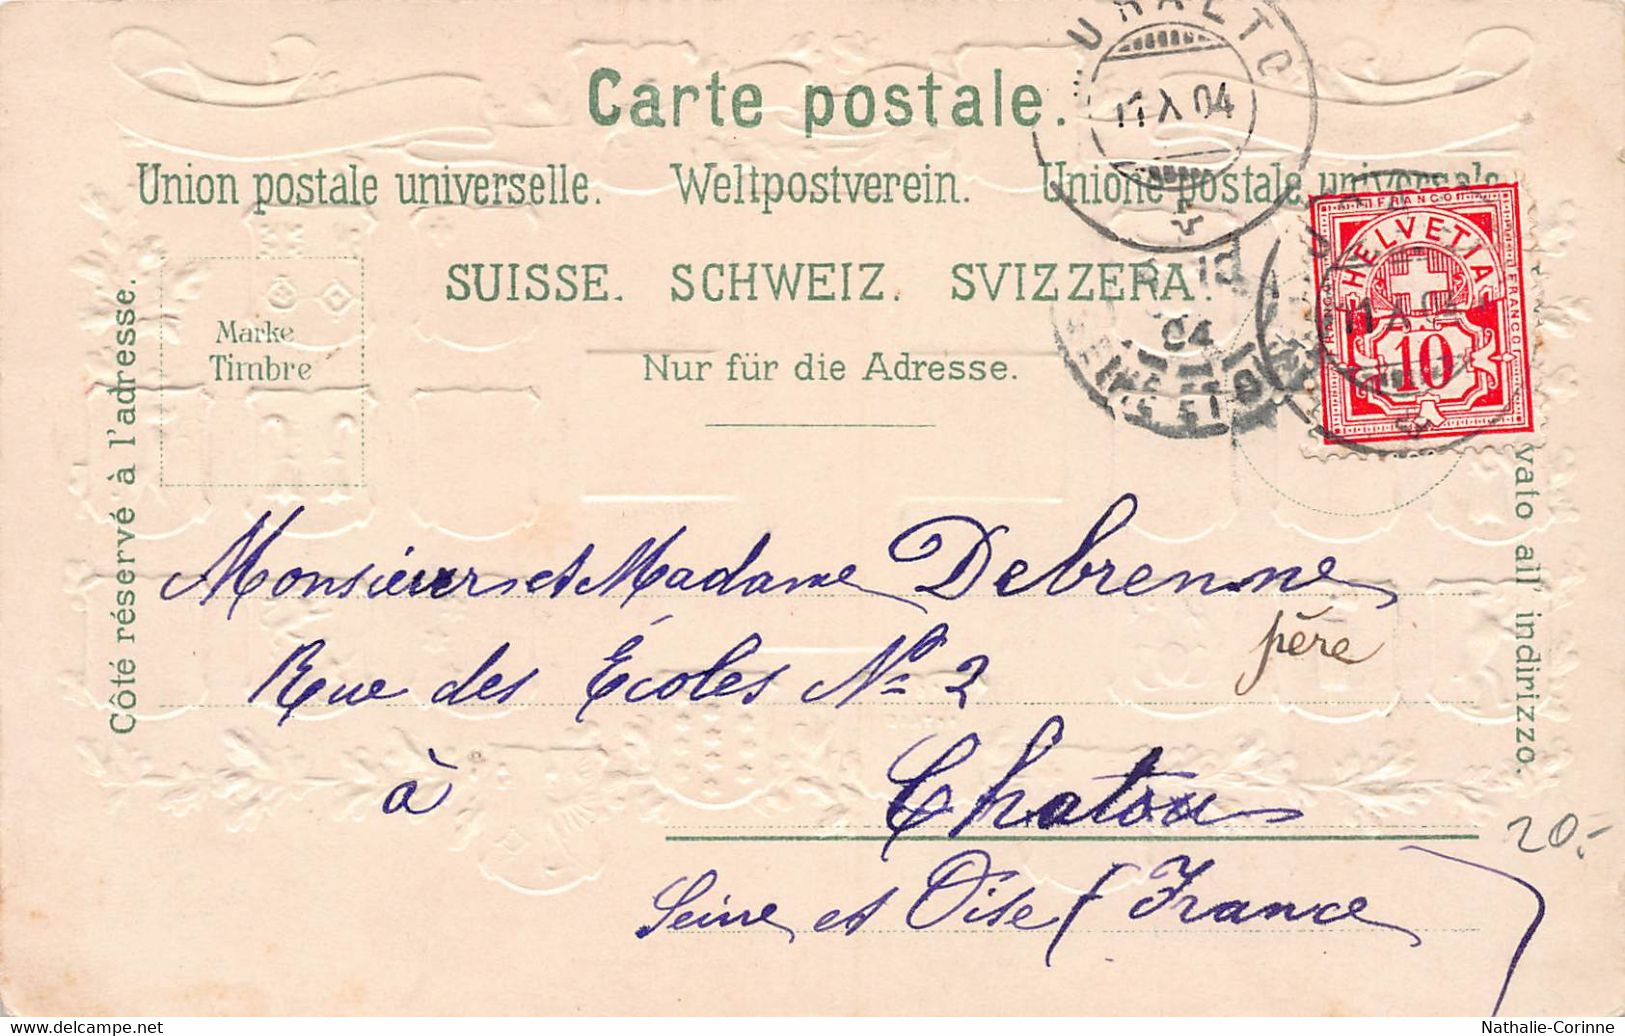 Carte postale.
Union postale universelle. Weltpostverein. Unione postale universale
SUISSE. SCHWEIZ. SVIZZERA.
Nur für die Adresse.
Marke
Timbre
Côté réservé à l'adresse.
vato all' indirizzo.
11 X 04
FRANCO
HELVETIA
FRANCO
10
11 X 04
04
SEINE ET OISE
Monsieur et Madame Debrenne
père
Rue des Écoles No 2
à Chatou
Seine et Oise (France)
20.-
Nathalie-Corinne